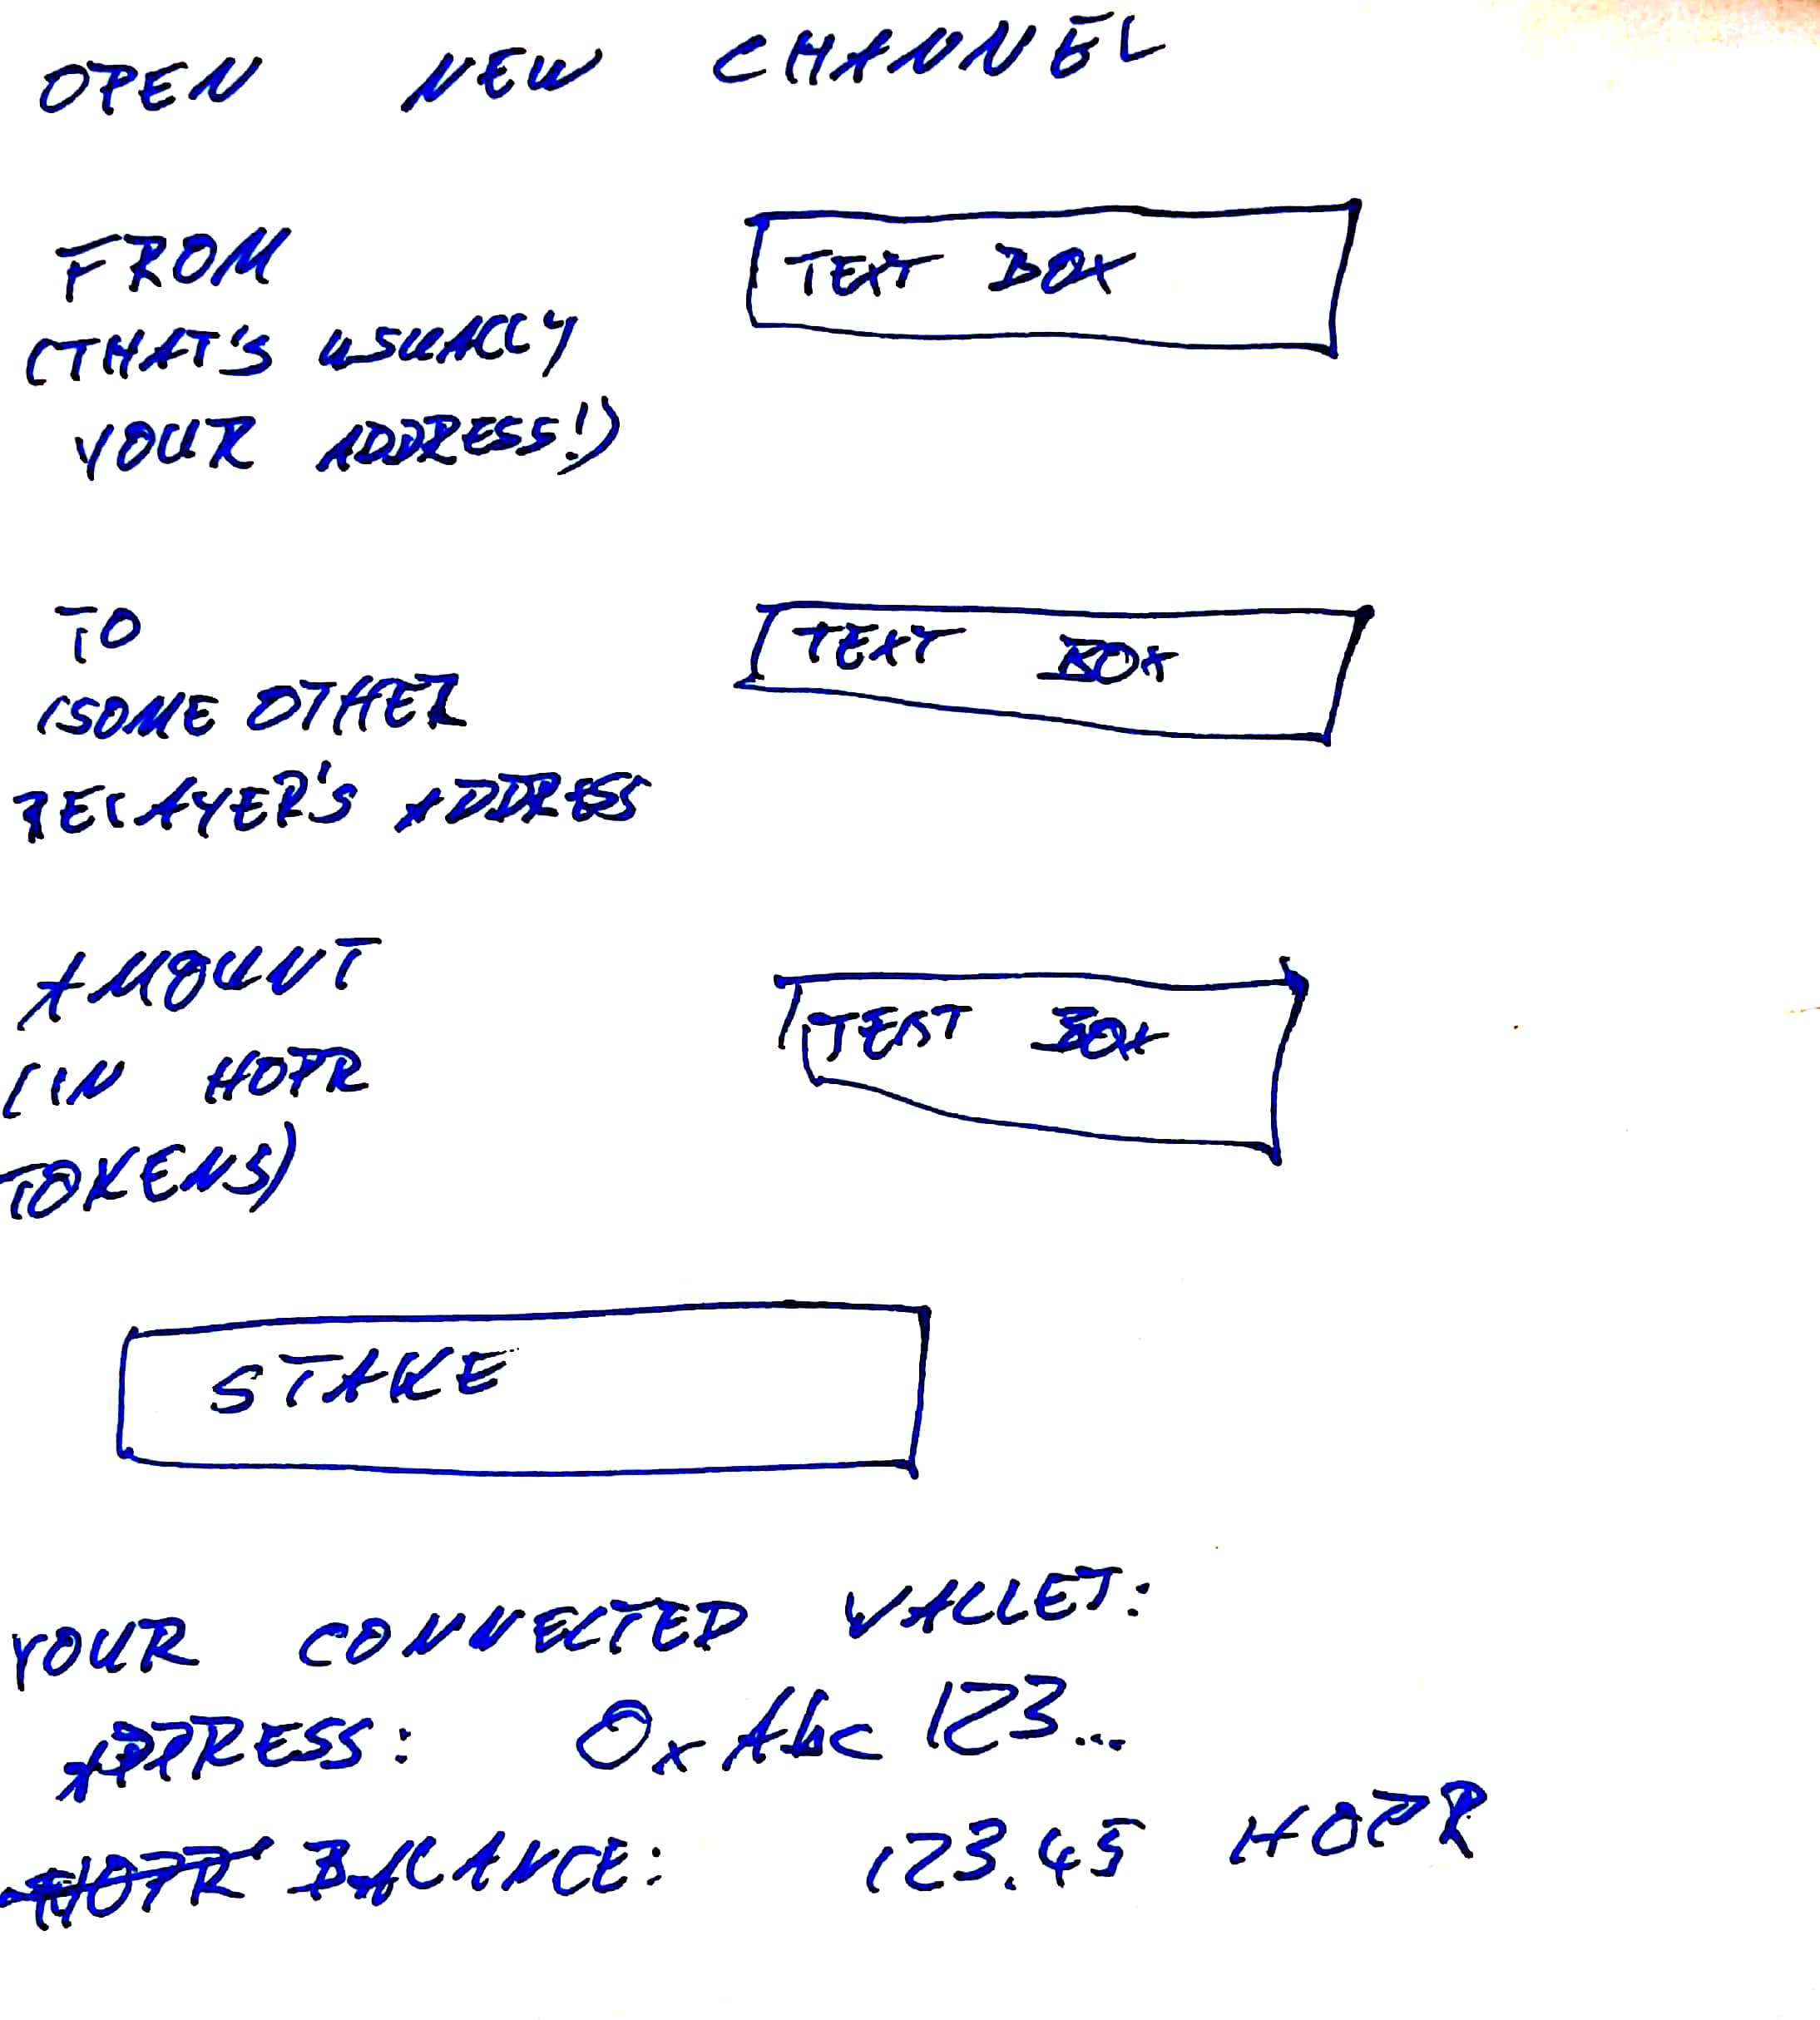 OPEN NEW CHANNEL
FROM
(THAT'S USUALLY
YOUR ADDRESS!)
TEXT BOX
TO
(SOME OTHER
RELAYER'S ADDRESS
TEXT BOX
AMOUNT
(IN HOPR
TOKENS)
TEXT BOX
STAKE
YOUR CONNECTED WALLET:
ADDRESS: 0xAbc123...
HOPR BALANCE: 123.45 HOPR